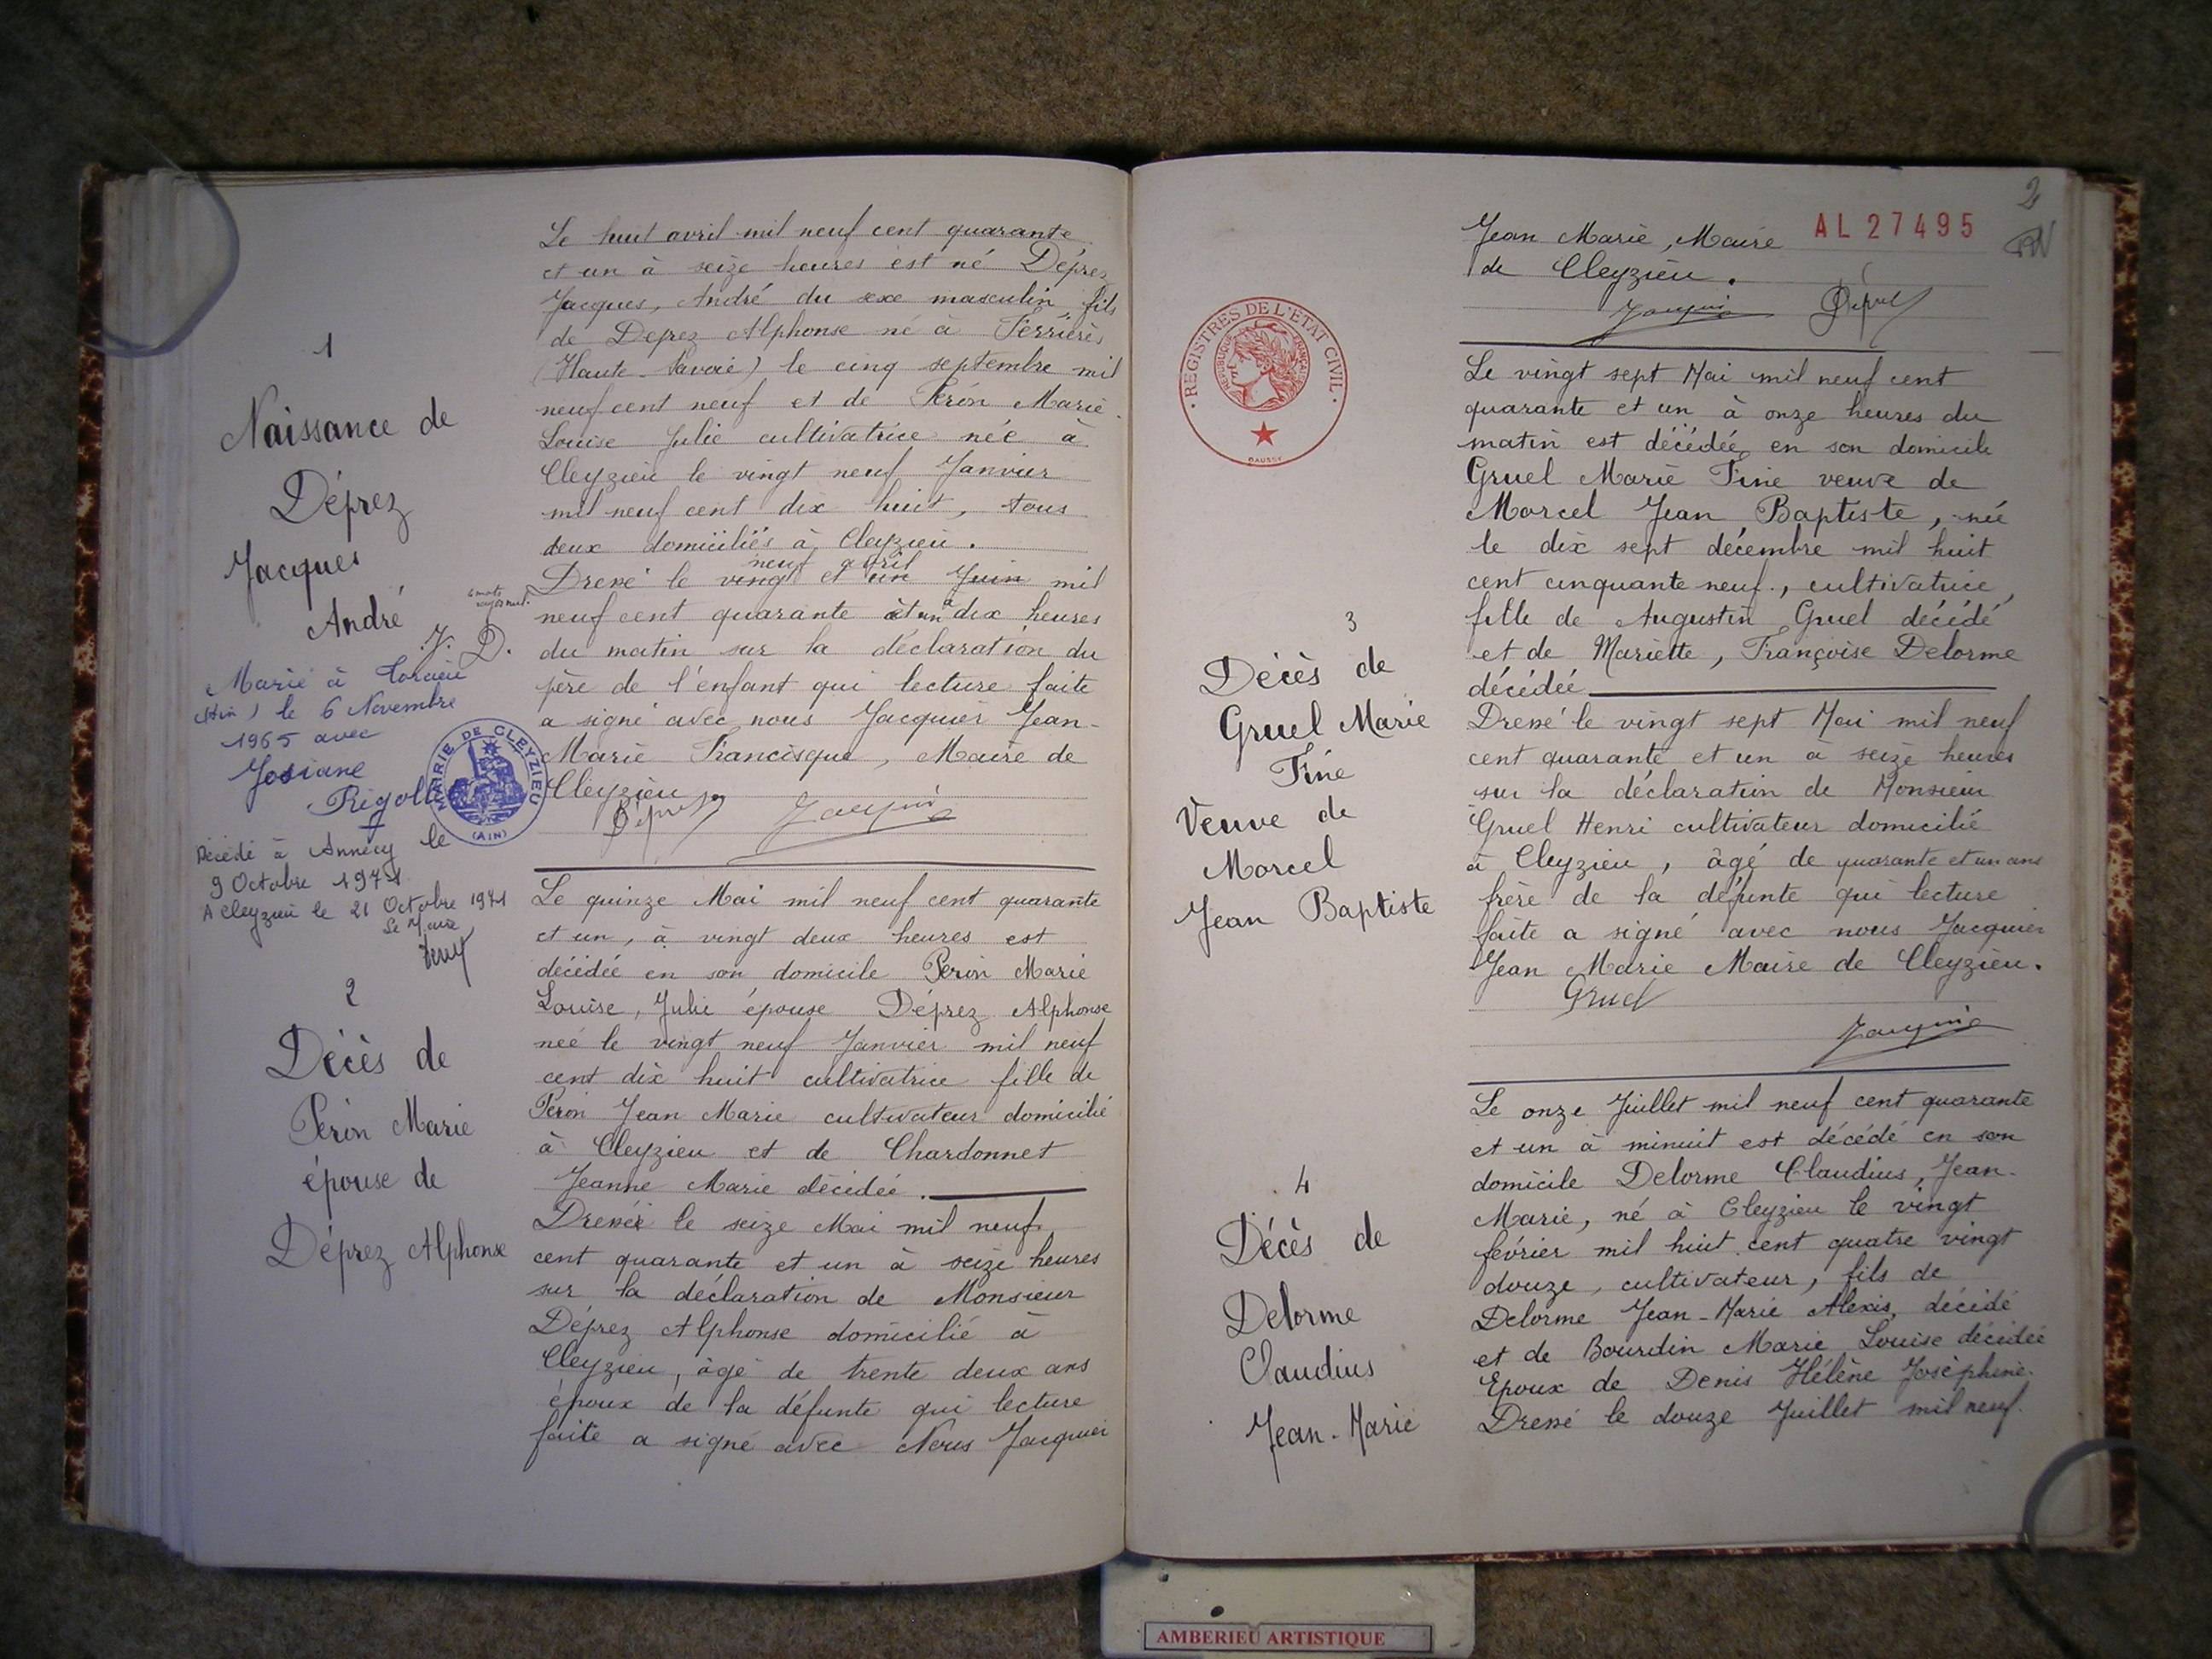 1
Naissance de
Déprez
Jacques
André
J. D.
Marié à Torcieu
(Ain) le 6 Novembre
1965 avec
Josiane
Rigollet
MAIRIE DE CLEYZIEU
(AIN)
Décédé à Annecy le
9 Octobre 1971
A Cleyzieu le 21 Octobre 1971
Le Maire
Le huit avril mil neuf cent quarante
et un à seize heures est né Déprez
Jacques, André du sexe masculin, fils
de Deprez Alphonse né à Ferrières
(Haute-Savoie) le cinq septembre mil
neuf cent neuf et de Péron Marie
Louise Julie cultivatrice née à
Cleyzieu le vingt neuf Janvier
mil neuf cent dix huit, tous
deux domiciliés à Cleyzieu.
neuf avril
Dressé le vingt et un Juin mil
neuf cent quarante et un à dix heures
du matin sur la déclaration du
père de l'enfant qui lecture faite
a signé avec nous Jacquier Jean-
Marie Francisque, Maire de
Cleyzieu
Déprez Jacquier
2
Décès de
Péron Marie
épouse de
Déprez Alphonse
Le quinze Mai mil neuf cent quarante
et un, à vingt deux heures est
décédée en son domicile Peron Marie
Louise, Julie épouse Déprez Alphonse
née le vingt neuf Janvier mil neuf
cent dix huit cultivatrice fille de
Peron Jean Marie cultivateur domicilié
à Cleyzieu et de Chardonnet
Jeanne Marie décédée.
Dressé le seize Mai mil neuf
cent quarante et un à seize heures
sur la déclaration de Monsieur
Déprez Alphonse domicilié à
Cleyzieu, âgé de trente deux ans
époux de la défunte qui lecture
faite a signé avec Nous Jacquier
2
AL 27495
Jean Marie, Maire
de Cleyzieu.
Jacquier Déprez
REGISTRES DE L'ETAT CIVIL
REPUBLIQUE FRANÇAISE
DAUSSY
3
Décès de
Gruel Marie
Fine
Veuve de
Morcel
Jean Baptiste
Le vingt sept Mai mil neuf cent
quarante et un à onze heures du
matin est décédée en son domicile
Gruel Marie Fine veuve de
Morcel Jean Baptiste, née
le dix sept décembre mil huit
cent cinquante neuf, cultivatrice,
fille de Augustin Gruel décédé
et de Mariette, Françoise Delorme
décédée
Dressé le vingt sept Mai mil neuf
cent quarante et un à seize heures
sur la déclaration de Monsieur
Gruel Henri cultivateur domicilié
à Cleyzieu, âgé de quarante et un ans
frère de la défunte qui lecture
faite a signé avec nous Jacquier
Jean Marie Maire de Cleyzieu.
Gruel
Jacquier
4
Décès de
Delorme
Claudius
Jean-Marie
Le onze Juillet mil neuf cent quarante
et un à minuit est décédé en son
domicile Delorme Claudius, Jean-
Marie, né à Cleyzieu le vingt
février mil huit cent quatre vingt
douze, cultivateur, fils de
Delorme Jean-Marie Alexis, décédé
et de Bourdin Marie Louise décédée
Epoux de Denis Hélène Joséphine.
Dressé le douze Juillet mil neuf
AMBERIEU ARTISTIQUE